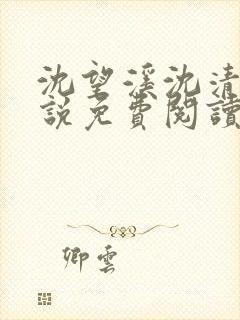 沈望溪沈清
說免費閱讀
卿雲